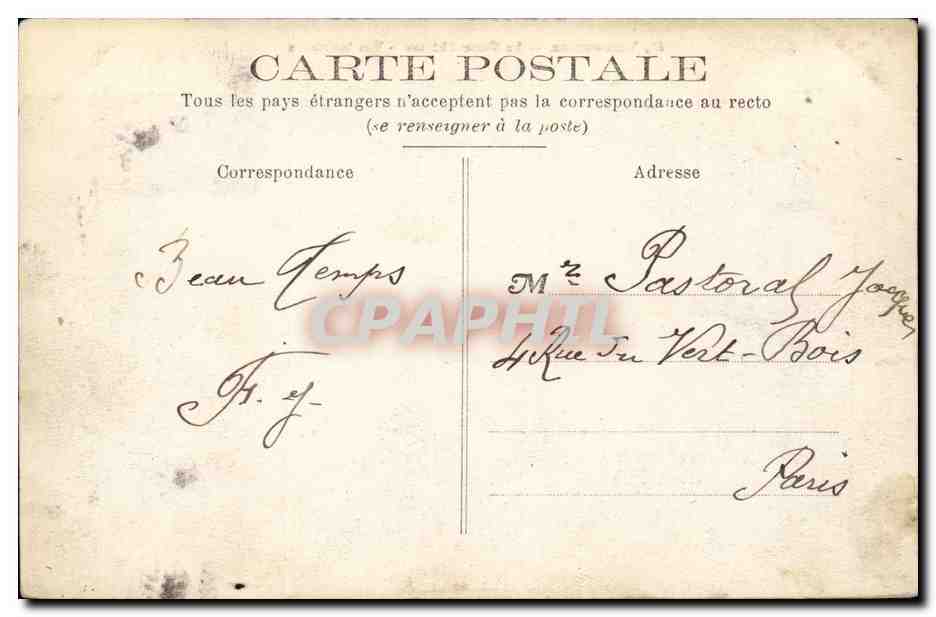 CARTE POSTALE
Tous les pays étrangers n'acceptent pas la correspondance au recto
(se renseigner à la poste)
Correspondance
Beau Temps
F. y-
Adresse
Mr Pastoral Jacques
4 Rue du Vert-Bois
Paris
CPAPHIL